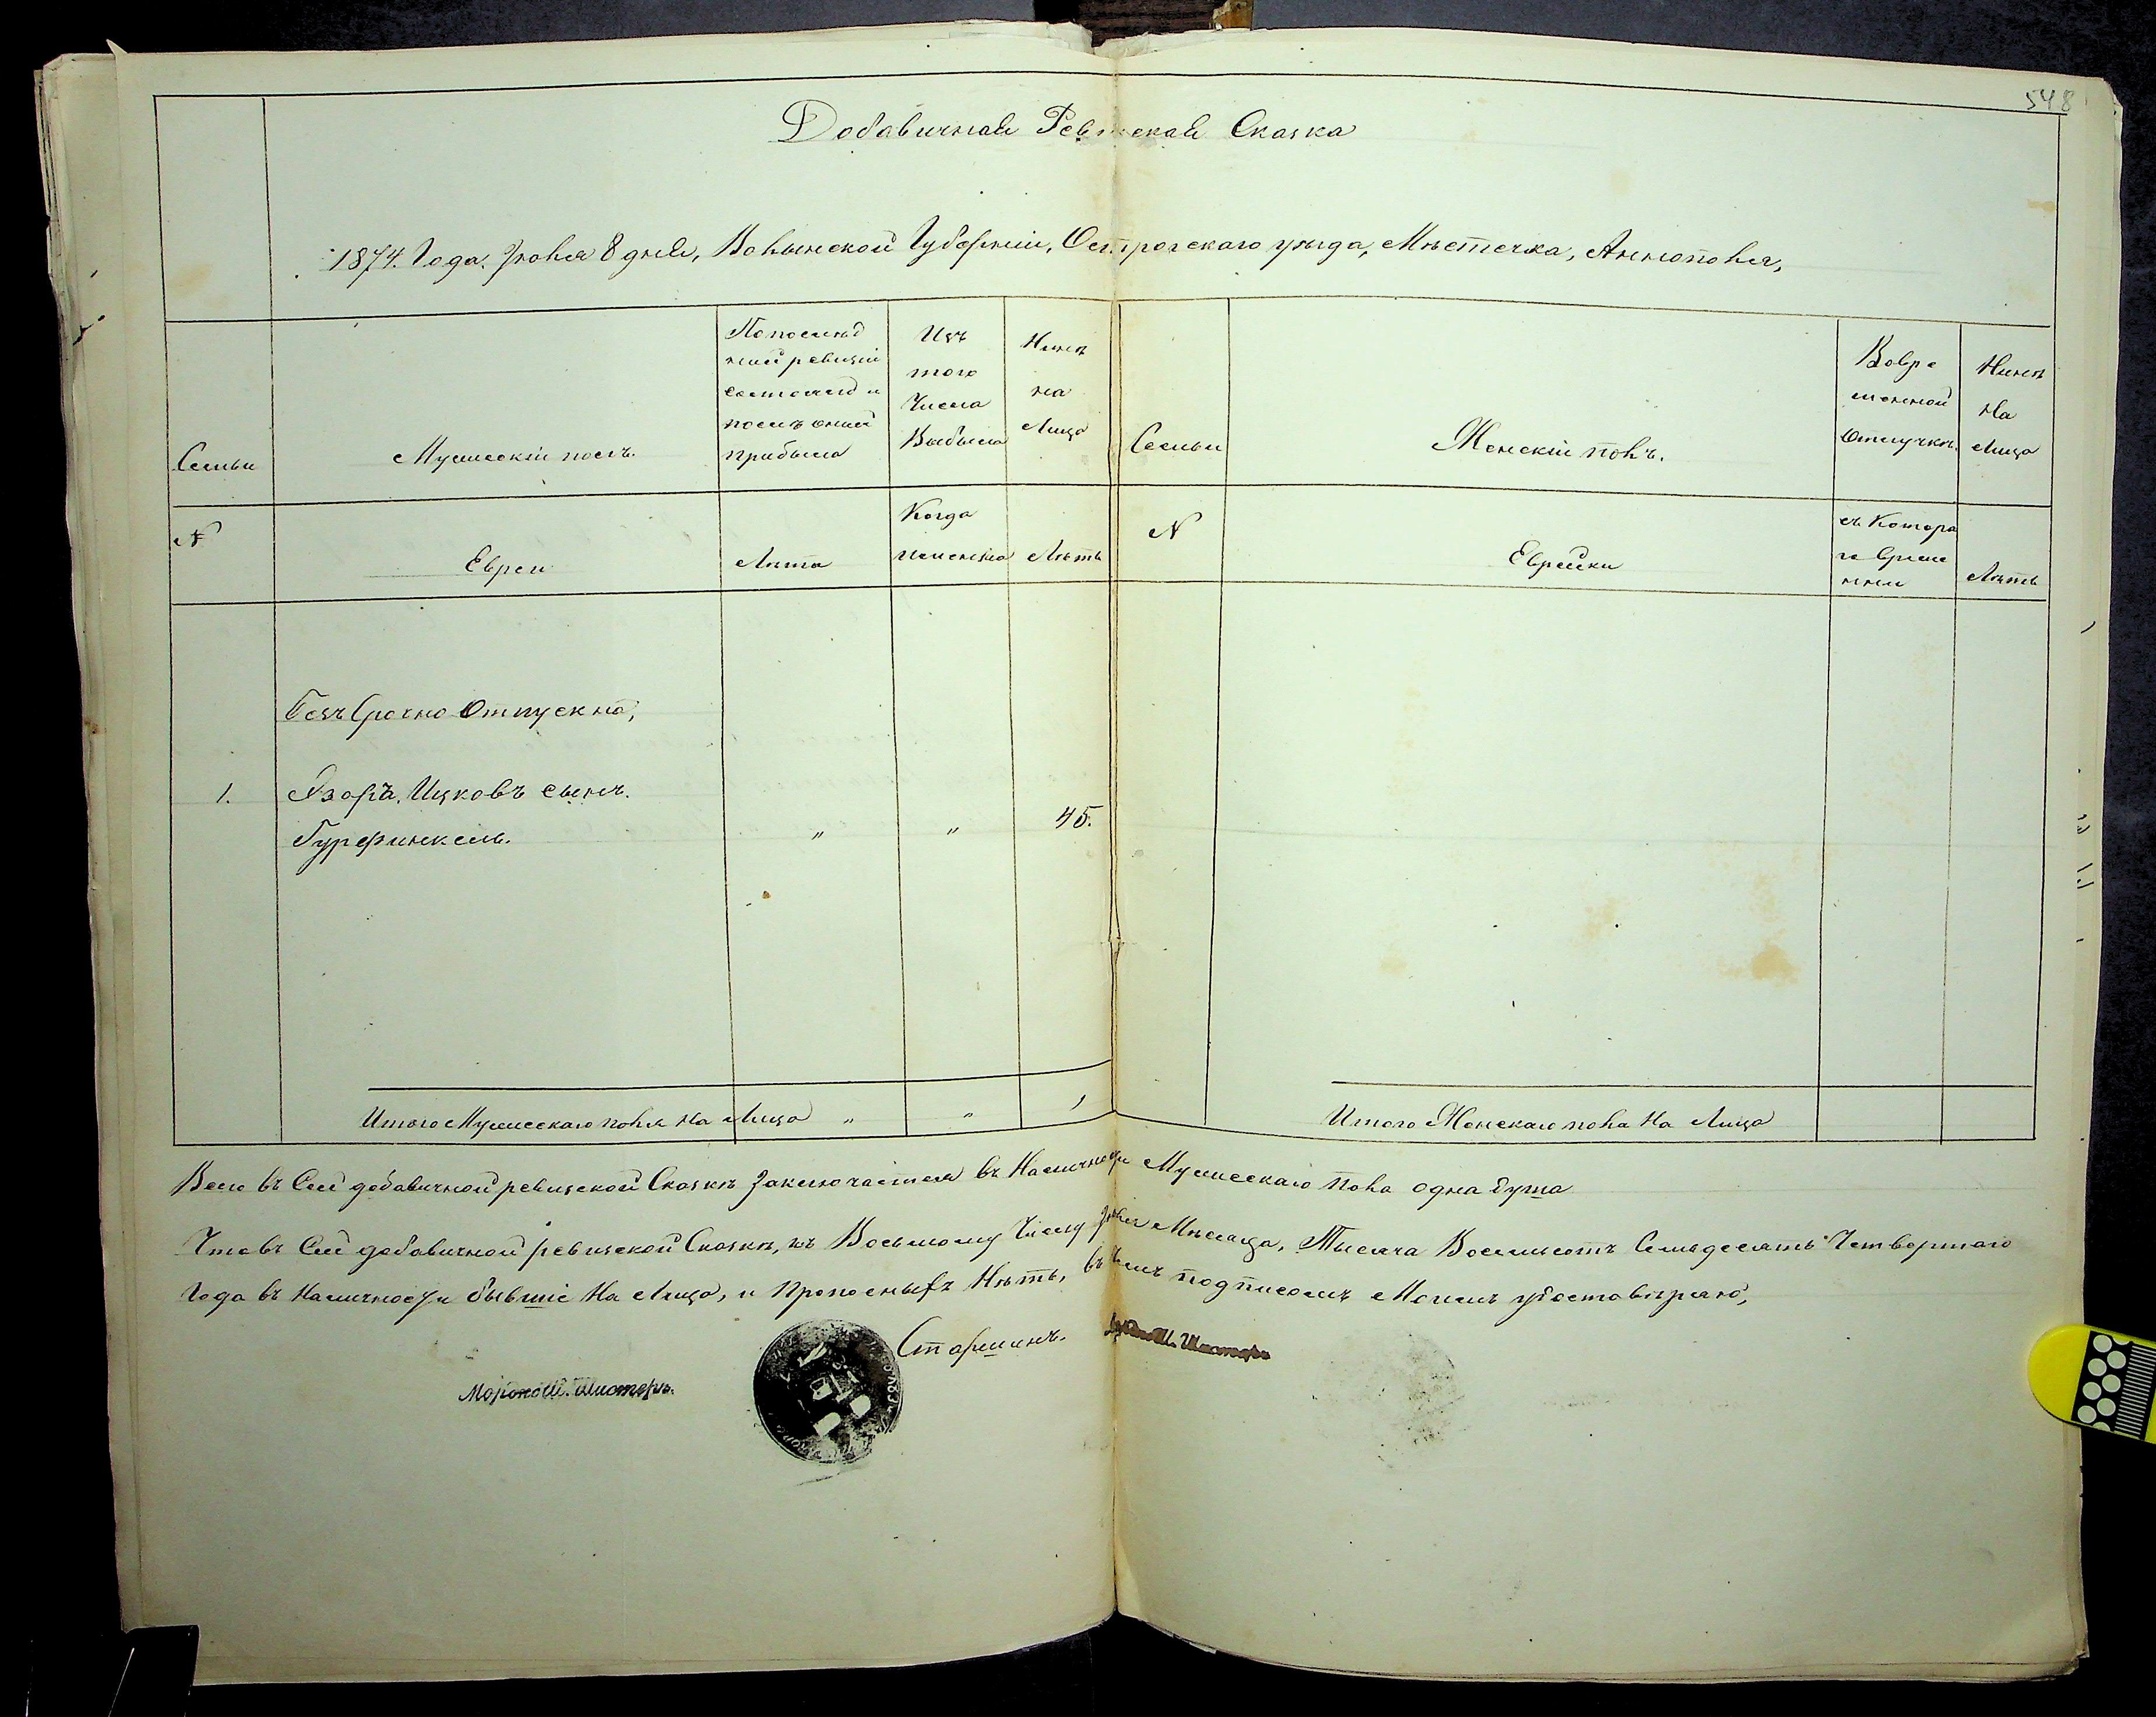 548
Добавичная Ревизская Сказка
1874. Года. Іюля 8 дня, Волынской Губерніи, Острогскаго уезда, Мѣстечка, Аннополя,
Семьи
Мужескій полъ.
По послѣд
ней ревизіи
состояло и
послѣ оной
прибыло
Изъ
того
Числа
Выбыло
Нынѣ
на
Лицо
Семьи
Женскій полъ.
Вовре
менной
Отлучкѣ.
Нынѣ
На
Лицо
№
Евреи
Лѣта
Когда
именно
Лѣтъ
N
Еврейки
съ Котора
го Време
нни
Лѣтъ
Безъ Срочно Отпускно,
1. Азоръ, Ицковъ сынъ.
Гурфинкель. " " 45.
Итого Мужескаго пола на Лицо " " 1
Итого Женскаго пола На Лицо
Всего въ Сей добавичной ревизской Сказкѣ Заключается въ Наличности Мужескаго Пола одна душа
Что въ Сей добавичной ревизской Сказкѣ, къ Восьмому Числу Іюля Мѣсяца, Тысяча Восемьсотъ Семьдесятъ Четвертаго
Года въ Наличности бывшіе На Лицо, и Прописныхъ Нѣтъ, въ чемъ подписомъ Моимъ удостовѣряю,
Старшинъ.